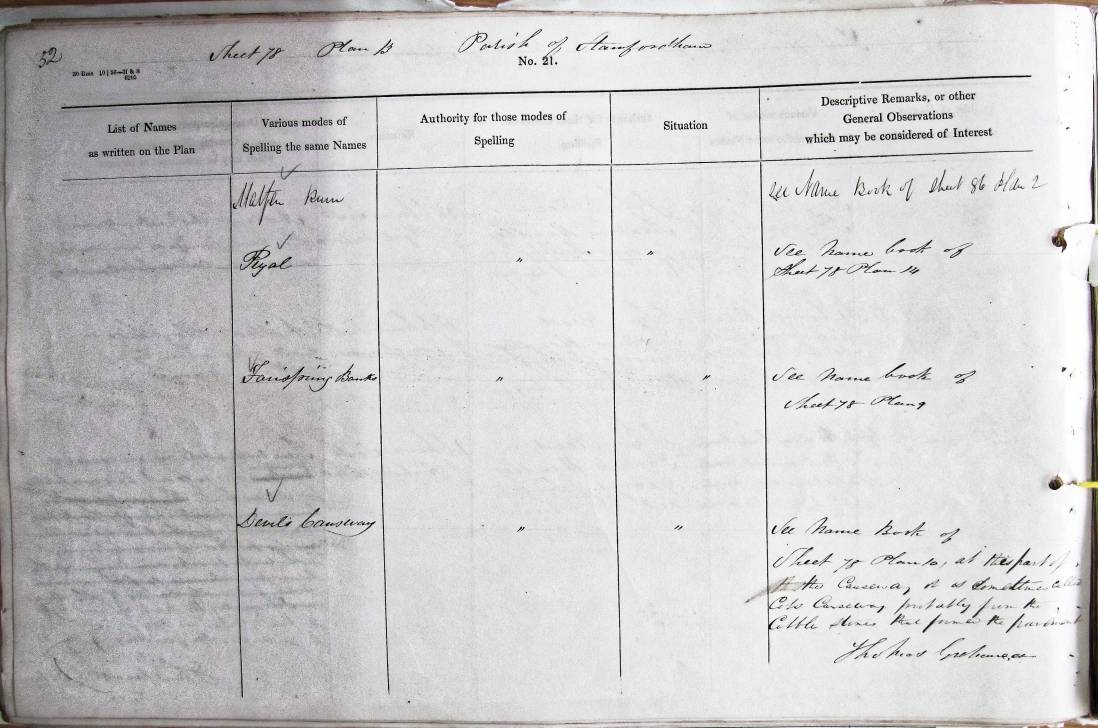 32
Sheet 78 Plan 13 Parish of Stamfordham
No. 21.
List of Names
as written on the Plan
Various modes of
Spelling the same Names
Authority for those modes of
Spelling
Situation
Descriptive Remarks, or other
General Observations
which may be considered of Interest
Matfen Burn
See Name Book of Sheet 86 Plan 2
Ryal " "
See Name book of
Sheet 78 Plan 14
Fairspring Banks " "
See Name book of
Sheet 78 Plan 9
Devil's Causeway " "
See Name Book of
Sheet 78 Plan 10, at this part of
the Causeway it is sometimes called
Cobs Causeway probably from the
Cobble stones that formed the pavement
Thomas